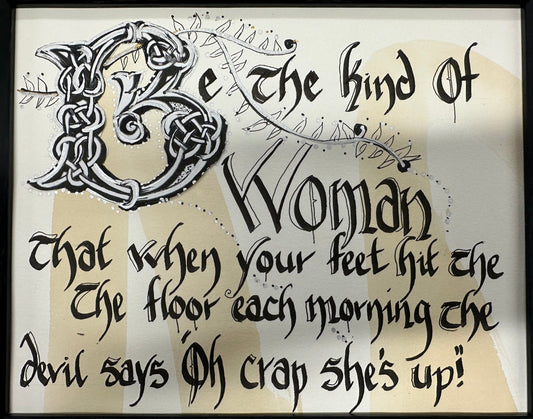 Be The kind Of
Woman
That when your feet hit the
The floor each morning the
devil says "Oh crap she's up!"